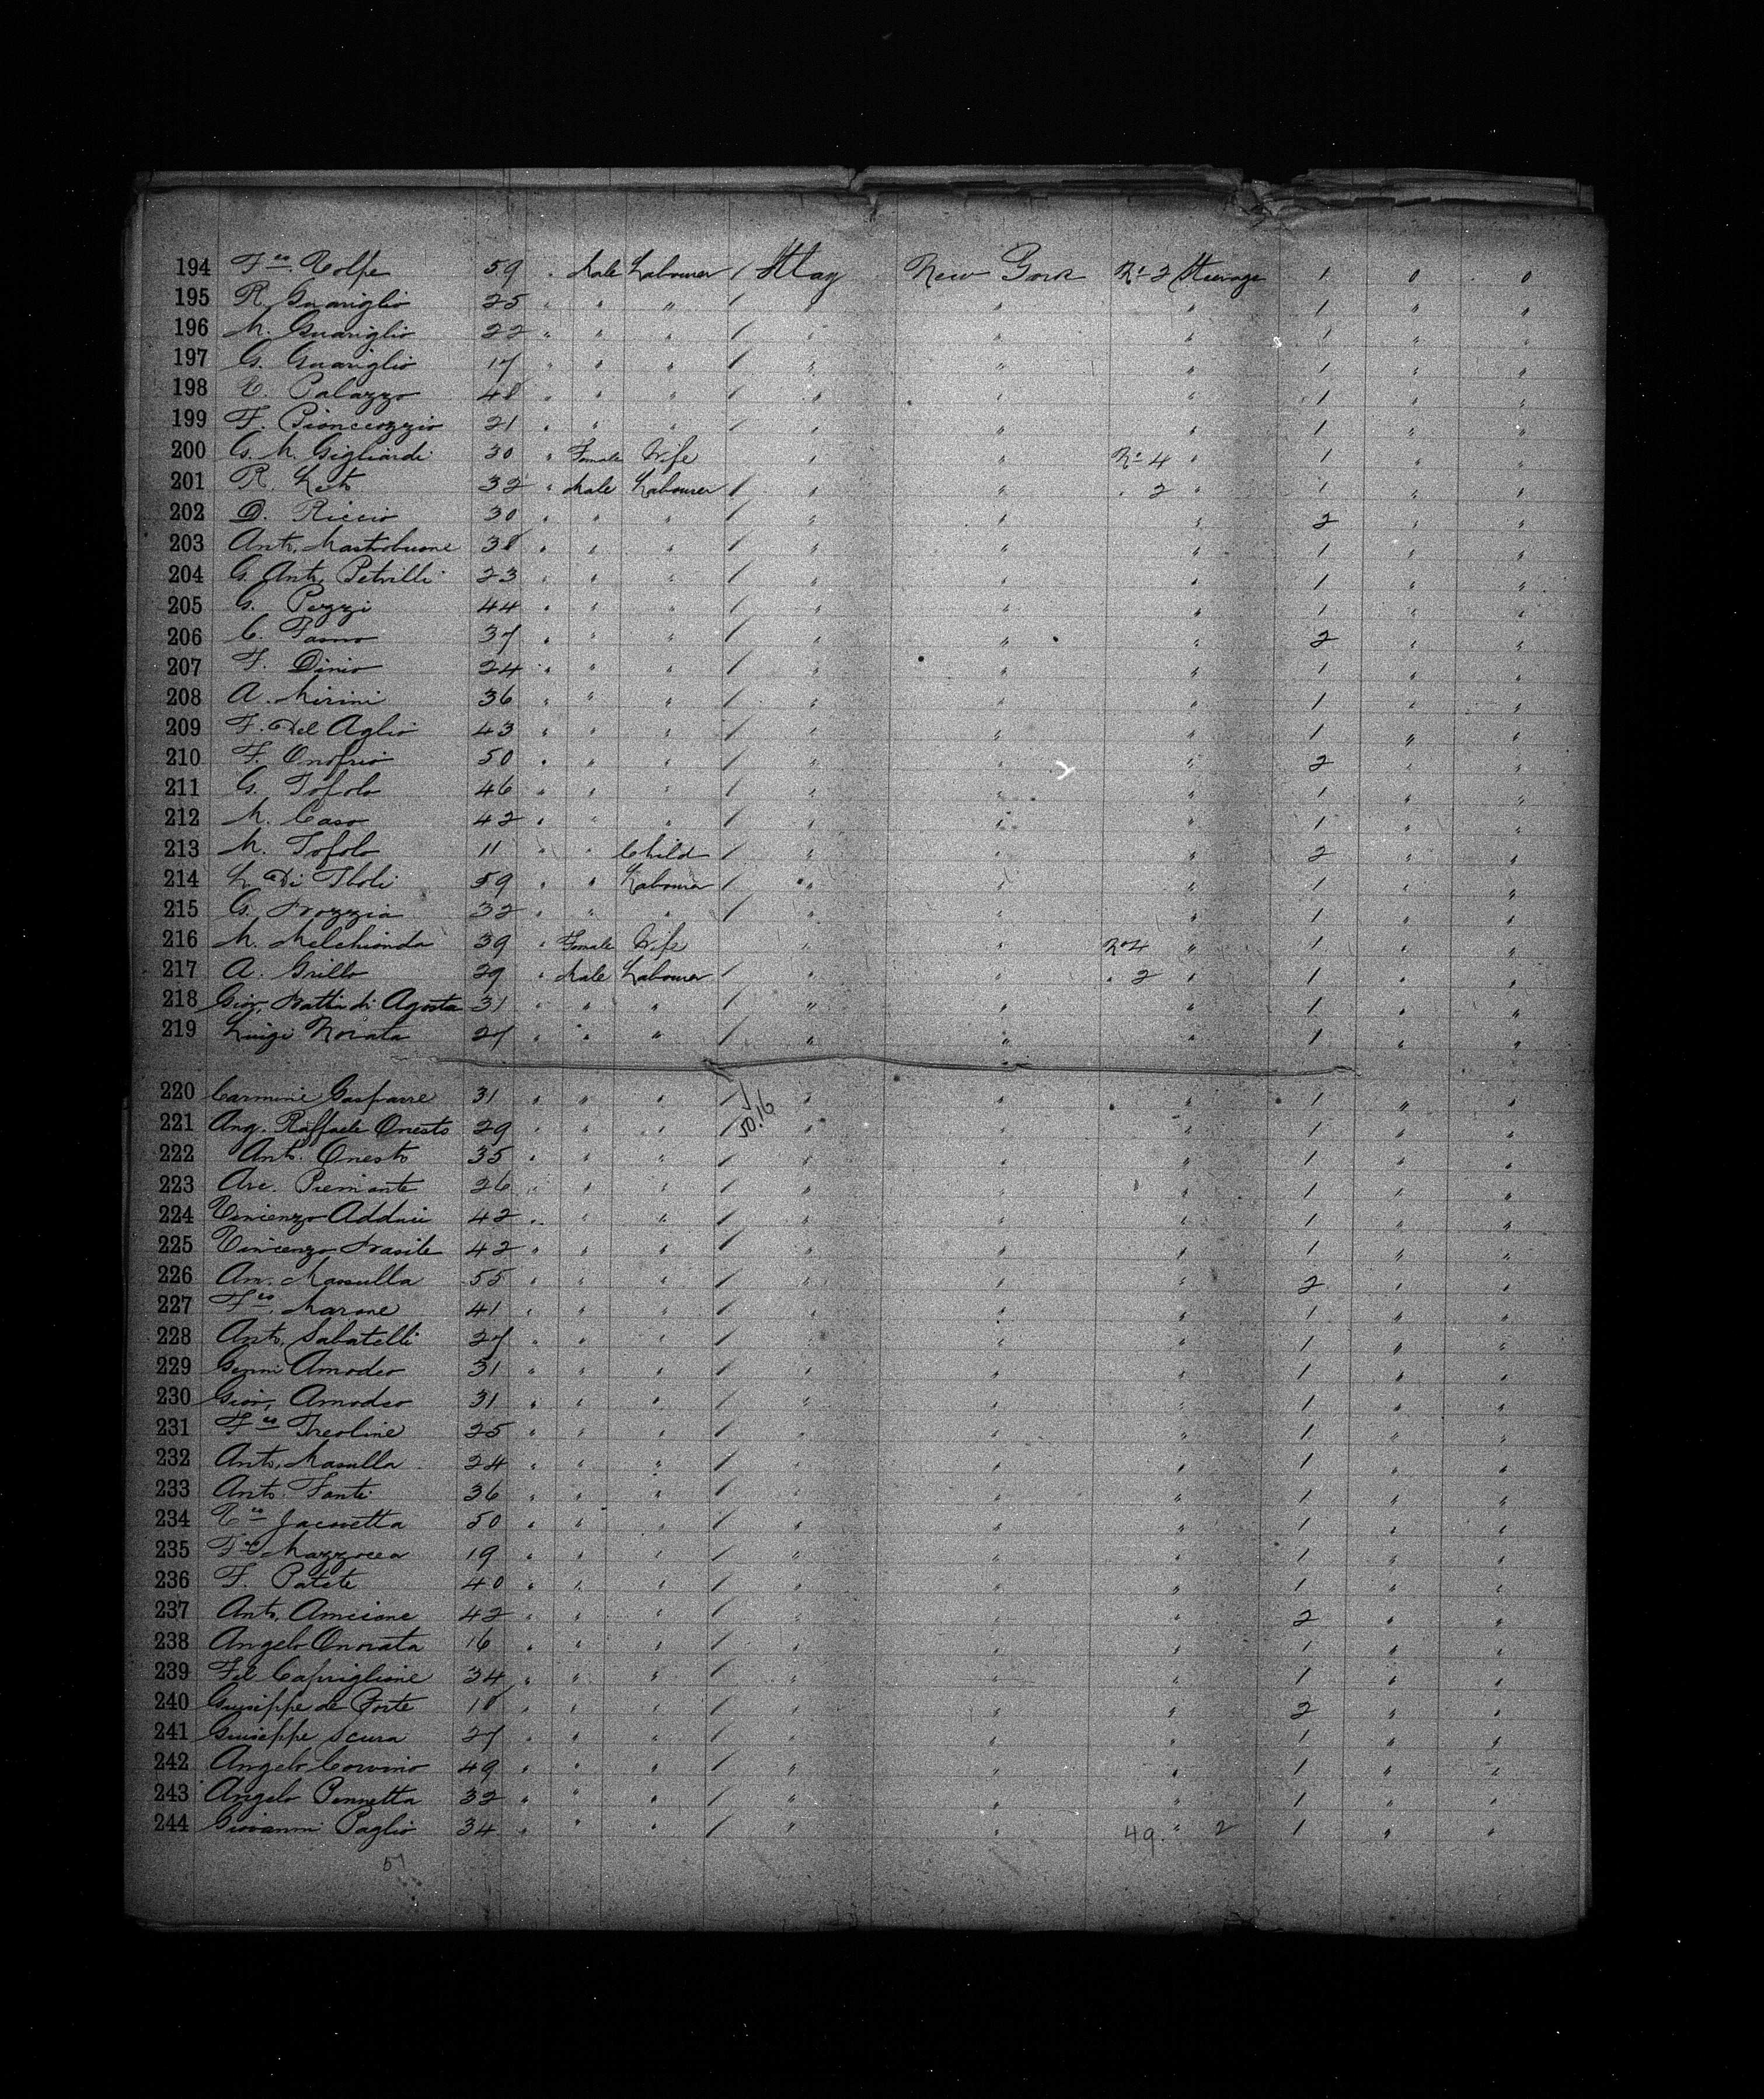 194 F.co Volpe 59 " Male Labourer / Italy New York No 2 Steerage 1 0 0
195 R. Guariglio 25 " " " / " " " 1 " "
196 M. Guariglio 22 " " " / " " " 1 " "
197 G. Guariglio 17 " " " / " " " 1 " "
198 V. Palazzo 48 " " " / " " " 1 " "
199 F. 21 " " " / " " " 1 " "
200 G. M. Gigliardi 30 " Female Wife " " No 4 " 1 " "
201 R. Leto 32 " Male Labourer / " " " 2 " 1 " "
202 D. Riccio 30 " " " / " " " 2 " "
203 Ant. Mastrobuone 38 " " " / " " " 1 " "
204 G. Ant. Petrilli 23 " " " / " " " 1 " "
205 G. Pezzi 44 " " " / " " " 1 " "
206 C. Fasno 37 " " " / " " " 2 " "
207 F. Dinio 24 " " " / " " " 1 " "
208 A. Mirini 36 " " " / " " " 1 " "
209 F. Del Aglio 43 " " " / " " " 1 " "
210 F. Onofrio 50 " " " / " " " 2 " "
211 G. Tofolo 46 " " " / " " " 1 " "
212 M. Caso 42 " " " / " " " 1 " "
213 M. Tofolo 11 " " Child / " " " 2 " "
214 L. Di 59 " " Labourer / " " " 1 " "
215 G. 32 " " " / " " " 1 " "
216 M. Melchionda 39 " Female Wife " " No 4 " 1 " "
217 A. Grillo 29 " Male Labourer / " " " 2 " 1 " "
218 Giov. di Agosta 31 " " " / " " " 1 " "
219 Luigi Norata 27 " " " / " " " 1 " "
220 Carmine Gasparre 31 " " " / " " " 1 " "
50.16
221 Ang. Raffaele Onesto 29 " " " / " " " 1 " "
222 Ant. Onesto 35 " " " / " " " 1 " "
223 Arc. Piemonte 26 " " " / " " " 1 " "
224 Vincenzo Adduci 42 " " " / " " " 1 " "
225 Vincenzo Brasile 42 " " " / " " " 1 " "
226 An. Massulla 55 " " " / " " " 2 " "
227 F.co Marone 41 " " " / " " " 1 " "
228 Ant. Sabatelli 27 " " " / " " " 1 " "
229 Genni Amodeo 31 " " " / " " " 1 " "
230 Giov. Amodeo 31 " " " / " " " 1 " "
231 F.co Treoline 25 " " " / " " " 1 " "
232 Ant. Masulla 24 " " " / " " " 1 " "
233 Ant. Fanti 36 " " " / " " " 1 " "
234 V.co Jacovetta 50 " " " / " " " 1 " "
235 F.co Mazzocca 19 " " " / " " " 1 " "
236 F. Patete 40 " " " / " " " 1 " "
237 Ant. Amicone 42 " " " / " " " 2 " "
238 Angelo Onorata 16 " " " / " " " 1 " "
239 Fel Capriglione 34 " " " / " " " 1 " "
240 Giuseppe de Forte 18 " " " / " " " 2 " "
241 Giuseppe Scura 27 " " " / " " " 1 " "
242 Angelo Corvino 49 " " " / " " " 1 " "
243 Angelo Pennetta 32 " " " / " " " 1 " "
244 Giovanni Paglio 34 " " " / " " 49. " 2 1 " "
51